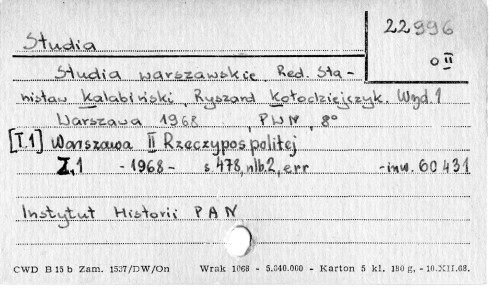 22996
Studia
0 II
Studia warszawskie Red. Sta-
nisław Kalabiński, Ryszard Kołodziejczyk. Wyd. 1
Warszawa 1968 , PWN , 8°
[T.1] Warszawa II Rzeczypospolitej
Z.1 - 1968 - s. 478, nlb. 2, err - inw. 60431
Instytut Historii PAN
CWD B 15 b Zam. 1537/DW/On Wrak 1068 - 5.040.000 - Karton 5 kl. 180 g, - 10.XII.68.